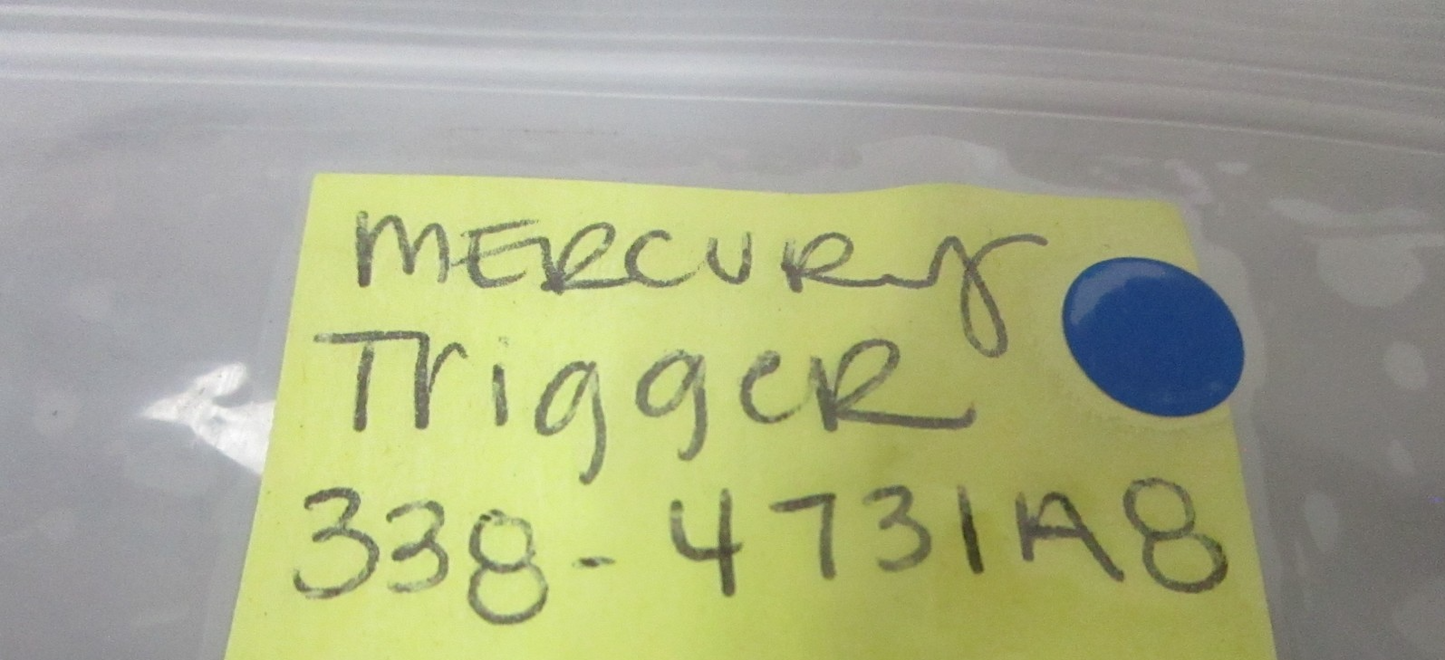 MERCURy
TriggeR
338-4731A8